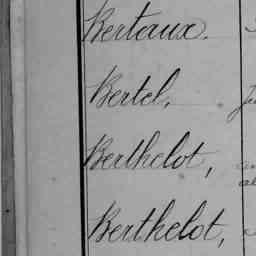 Bertaux.
Bertel,
Berthelot,
Berthelot,